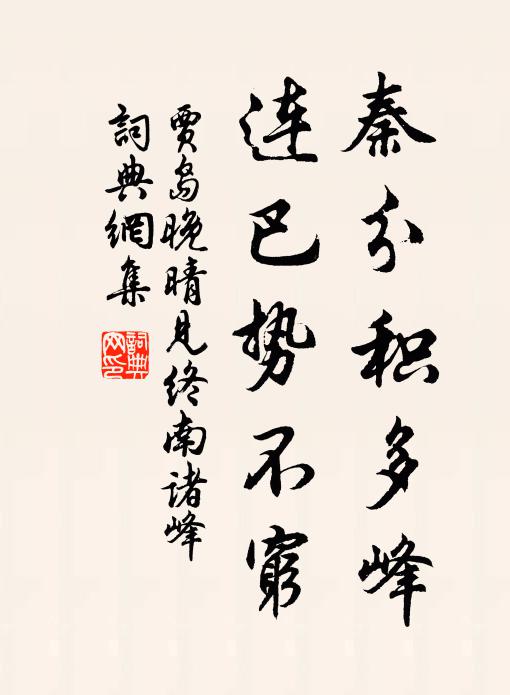 秦分积多峰
连巴势不窮
贾岛晚晴見终南诸峰
詞典網集
詞典網印